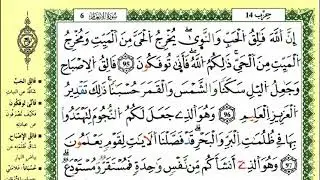 حزب 14
سورة الأنعام 6
إِنَّ اَللَّهَ فَالِقُ اُلْحَبِّ وَالنَّوَىٰ يُخْرِجُ اُلْحَيَّ مِنَ اَلْمَيِّتِ وَمُخْرِجُ
اُلْمَيِّتِ مِنَ اَلْحَيِّ ذَٰلِكُمُ اُللَّهُ فَأَنَّىٰ تُوفَكُونَ 95 فَالِقُ اُلْإِصْبَاحِ
وَجَٰعِلُ اُلَّيْلِ سَكَنًا وَالشَّمْسَ وَالْقَمَرَ حُسْبَانًا ذَٰلِكَ تَقْدِيرُ
اُلْعَزِيزِ اِلْعَلِيمِ 96 وَهُوَ اَلَّذِي جَعَلَ لَكُمُ اُلنُّجُومَ لِتَهْتَدُوا
بِهَا فِي ظُلُمَٰتِ اِلْبَرِّ وَالْبَحْرِ قَدْ فَصَّلْنَا اَلْأيَٰتِ لِقَوْمٍ يَعْلَمُونَ
97 وَهُوَ اَلَّذِي أَنشَأَكُم مِّن نَّفْسٍ وَٰحِدَةٍ فَمُسْتَقَرٌّ وَمُسْتَوْدَعٌ
فالق الحب
فأنى توفكون
فالق الإصباح